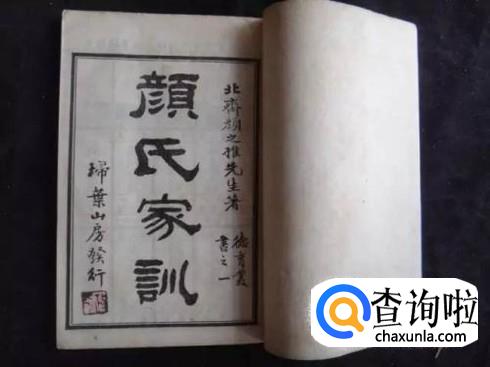 北齊顏之推先生著
德育叢
書之一
顏氏家訓
掃葉山房發行
查询啦
chaxunla.com